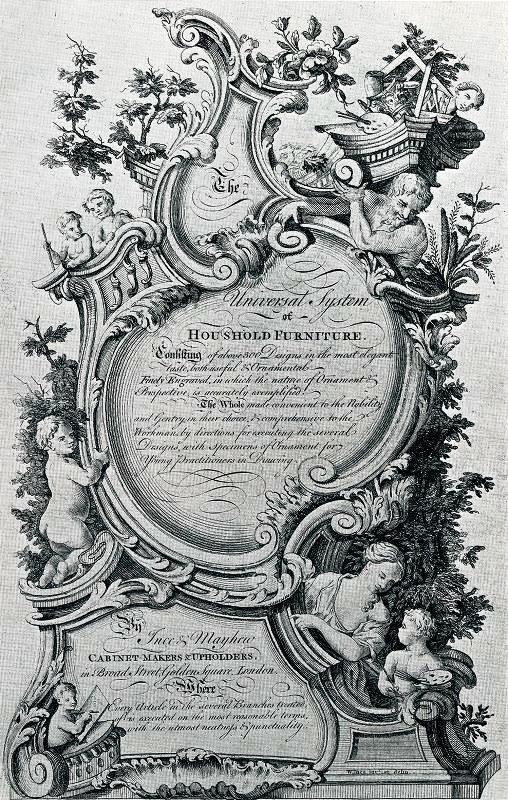 The
Universal System
of
HOUSHOLD FURNITURE.
Consisting of above 300 Designs in the most elegant
taste, both useful & Ornamental
Finely Engraved, in which the nature of Ornament &
Perspective is accurately exemplified.
The Whole made convenient to the Nobility
and Gentry, in their choice, & comprehensive to the
Workman, by directions for executing the several
Designs, with specimens of Ornament for
Young Practitioners in Drawing.
By
Ince & Mayhew
CABINET-MAKERS & UPHOLDERS,
in Broad Street, Golden Square, London.
Where
Every Article in the several Branches treated
of, is executed on the most reasonable terms,
with the utmost neatness & punctuality.